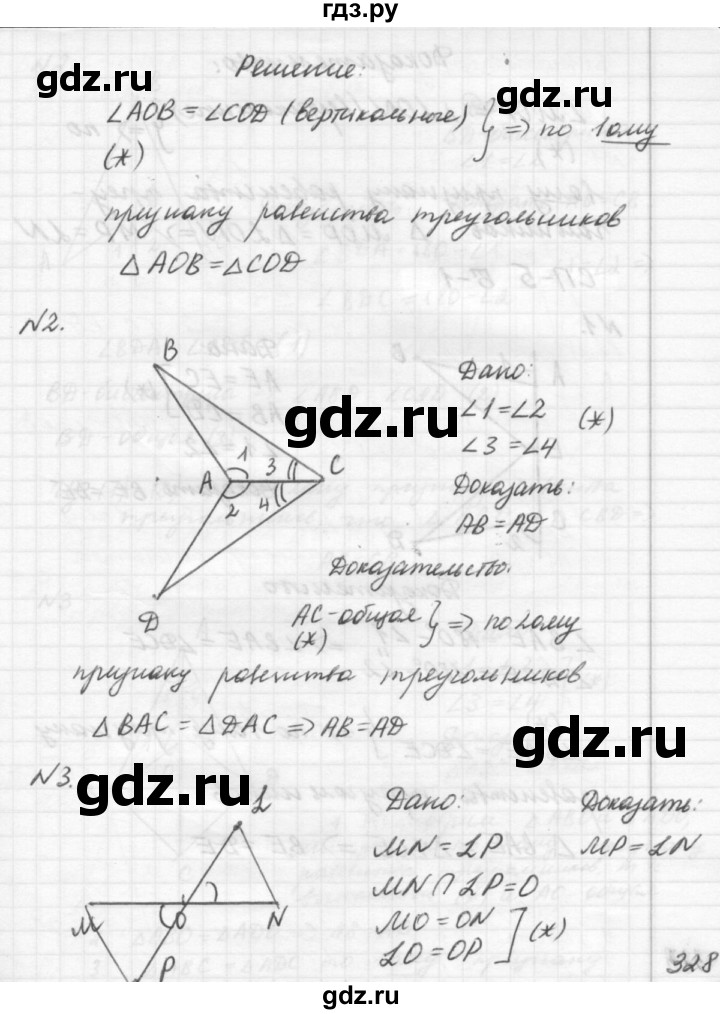 гдз.ру
Решение:
∠AOB = ∠COD (вертикальные)
(*)
} => по 1ому
признаку равенства треугольников
△AOB = △COD
N2.
B
A
C
D
1
2
3
4
Дано:
∠1 = ∠2
∠3 = ∠4
(*)
Доказать:
AB = AD
Доказательство.
AC - общая
(*)
} => по 2ому
признаку равенства треугольников
△BAC = △DAC => AB = AD
N3.
L
M
O
N
P
Дано:
MN = LP
MN ∩ LP = O
MO = ON
LO = OP
] (*)
Доказать:
MP = LN
328
gdz.ru
gdz.ru
gdz.ru
gdz.ru
gdz.ru
gdz.ru
gdz.ru
gdz.ru
гдз.ру